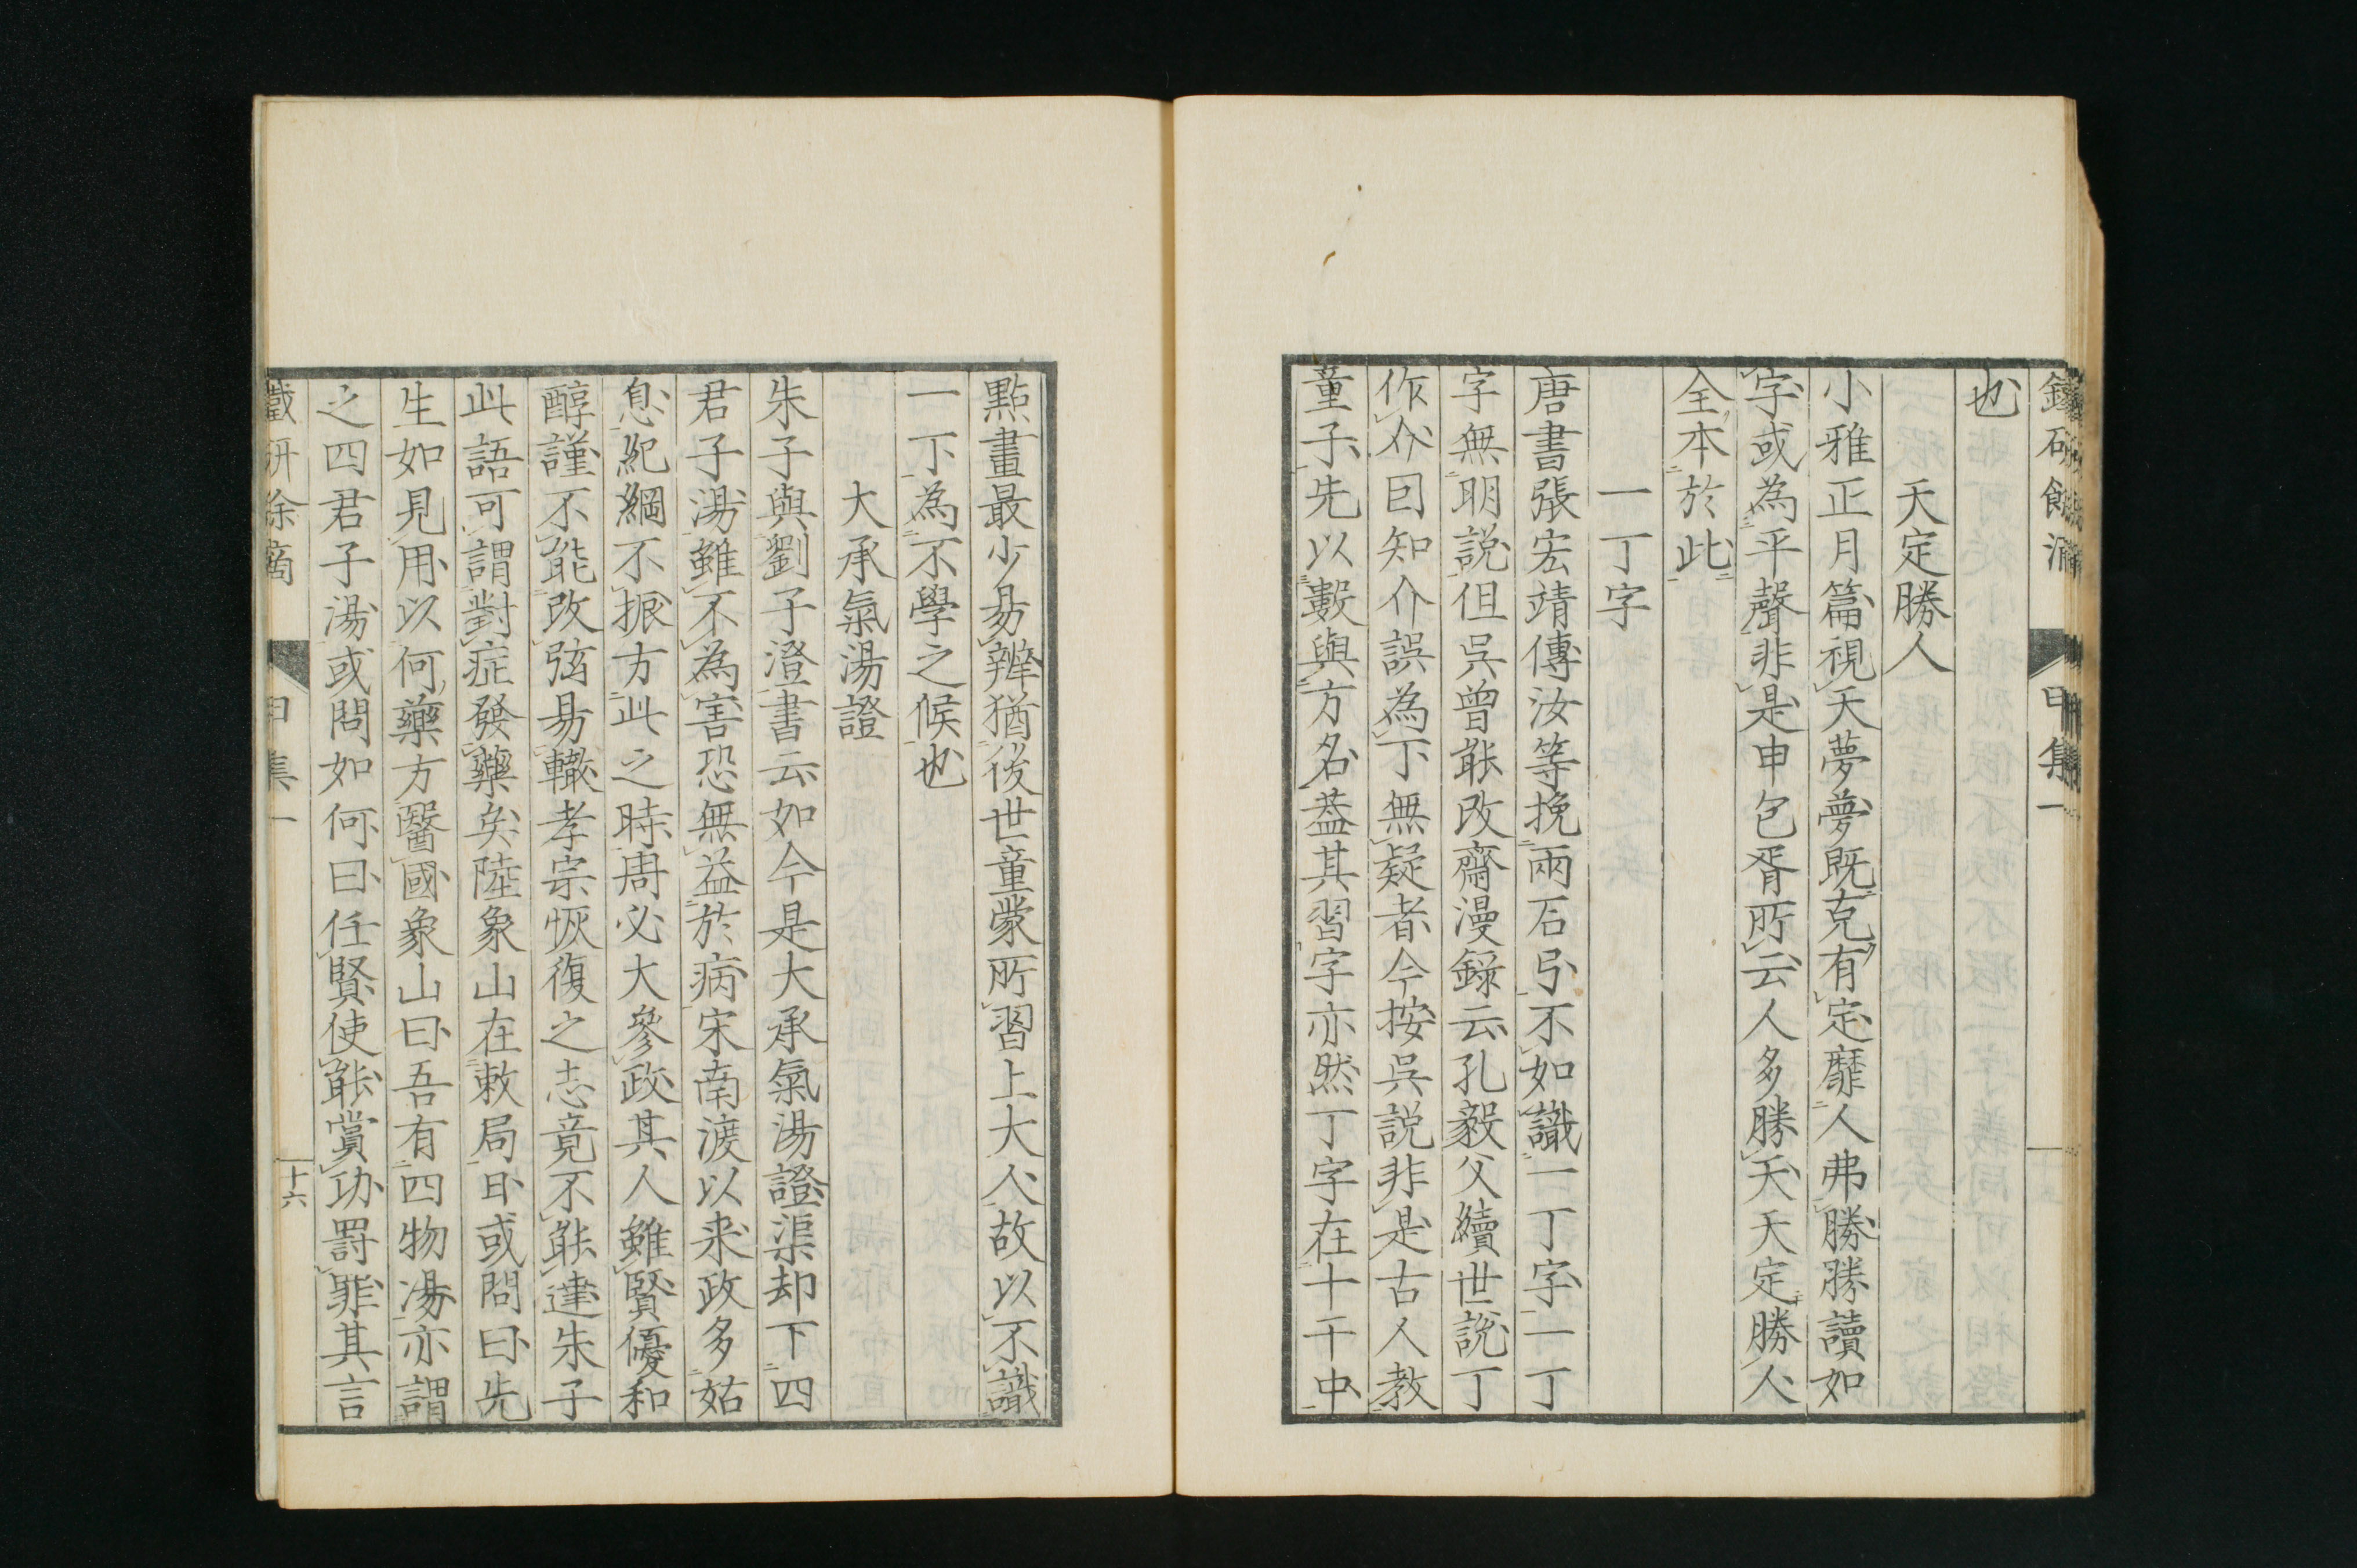 也
天定勝人
小雅正月篇視天夢夢既克有定靡人弗勝勝讀如
字或為平聲非是申包胥所云人多勝天天定勝人
全本於此
一丁字
唐書張宏靖傳汝等挽兩石弓不如識一丁字一丁
字無明説但吳曾能改齋漫錄云孔毅父續世説丁
作个因知个誤為丁無疑者今按吳説非是古人教
童子先以數與方名葢其習字亦然丁字在十干中
點畫最少易辨猶後世童蒙所習上大人故以不識
一丁為不學之候也
大承氣湯證
朱子與劉子澄書云如今是大承氣湯證渠却下四
君子湯雖不為害恐無益於病宋南渡以來政多姑
息紀綱不振方此之時周必大參政其人雖賢優和
醇謹不能改弦易轍孝宗恢復之志竟不能達朱子
此語可謂對症發藥矣陸象山在敕局日或問曰先
生如見用以何藥方醫國象山曰吾有四物湯亦謂
之四君子湯或問如何曰任賢使能賞功罰罪其言
鐵研餘滴
甲集一
十六